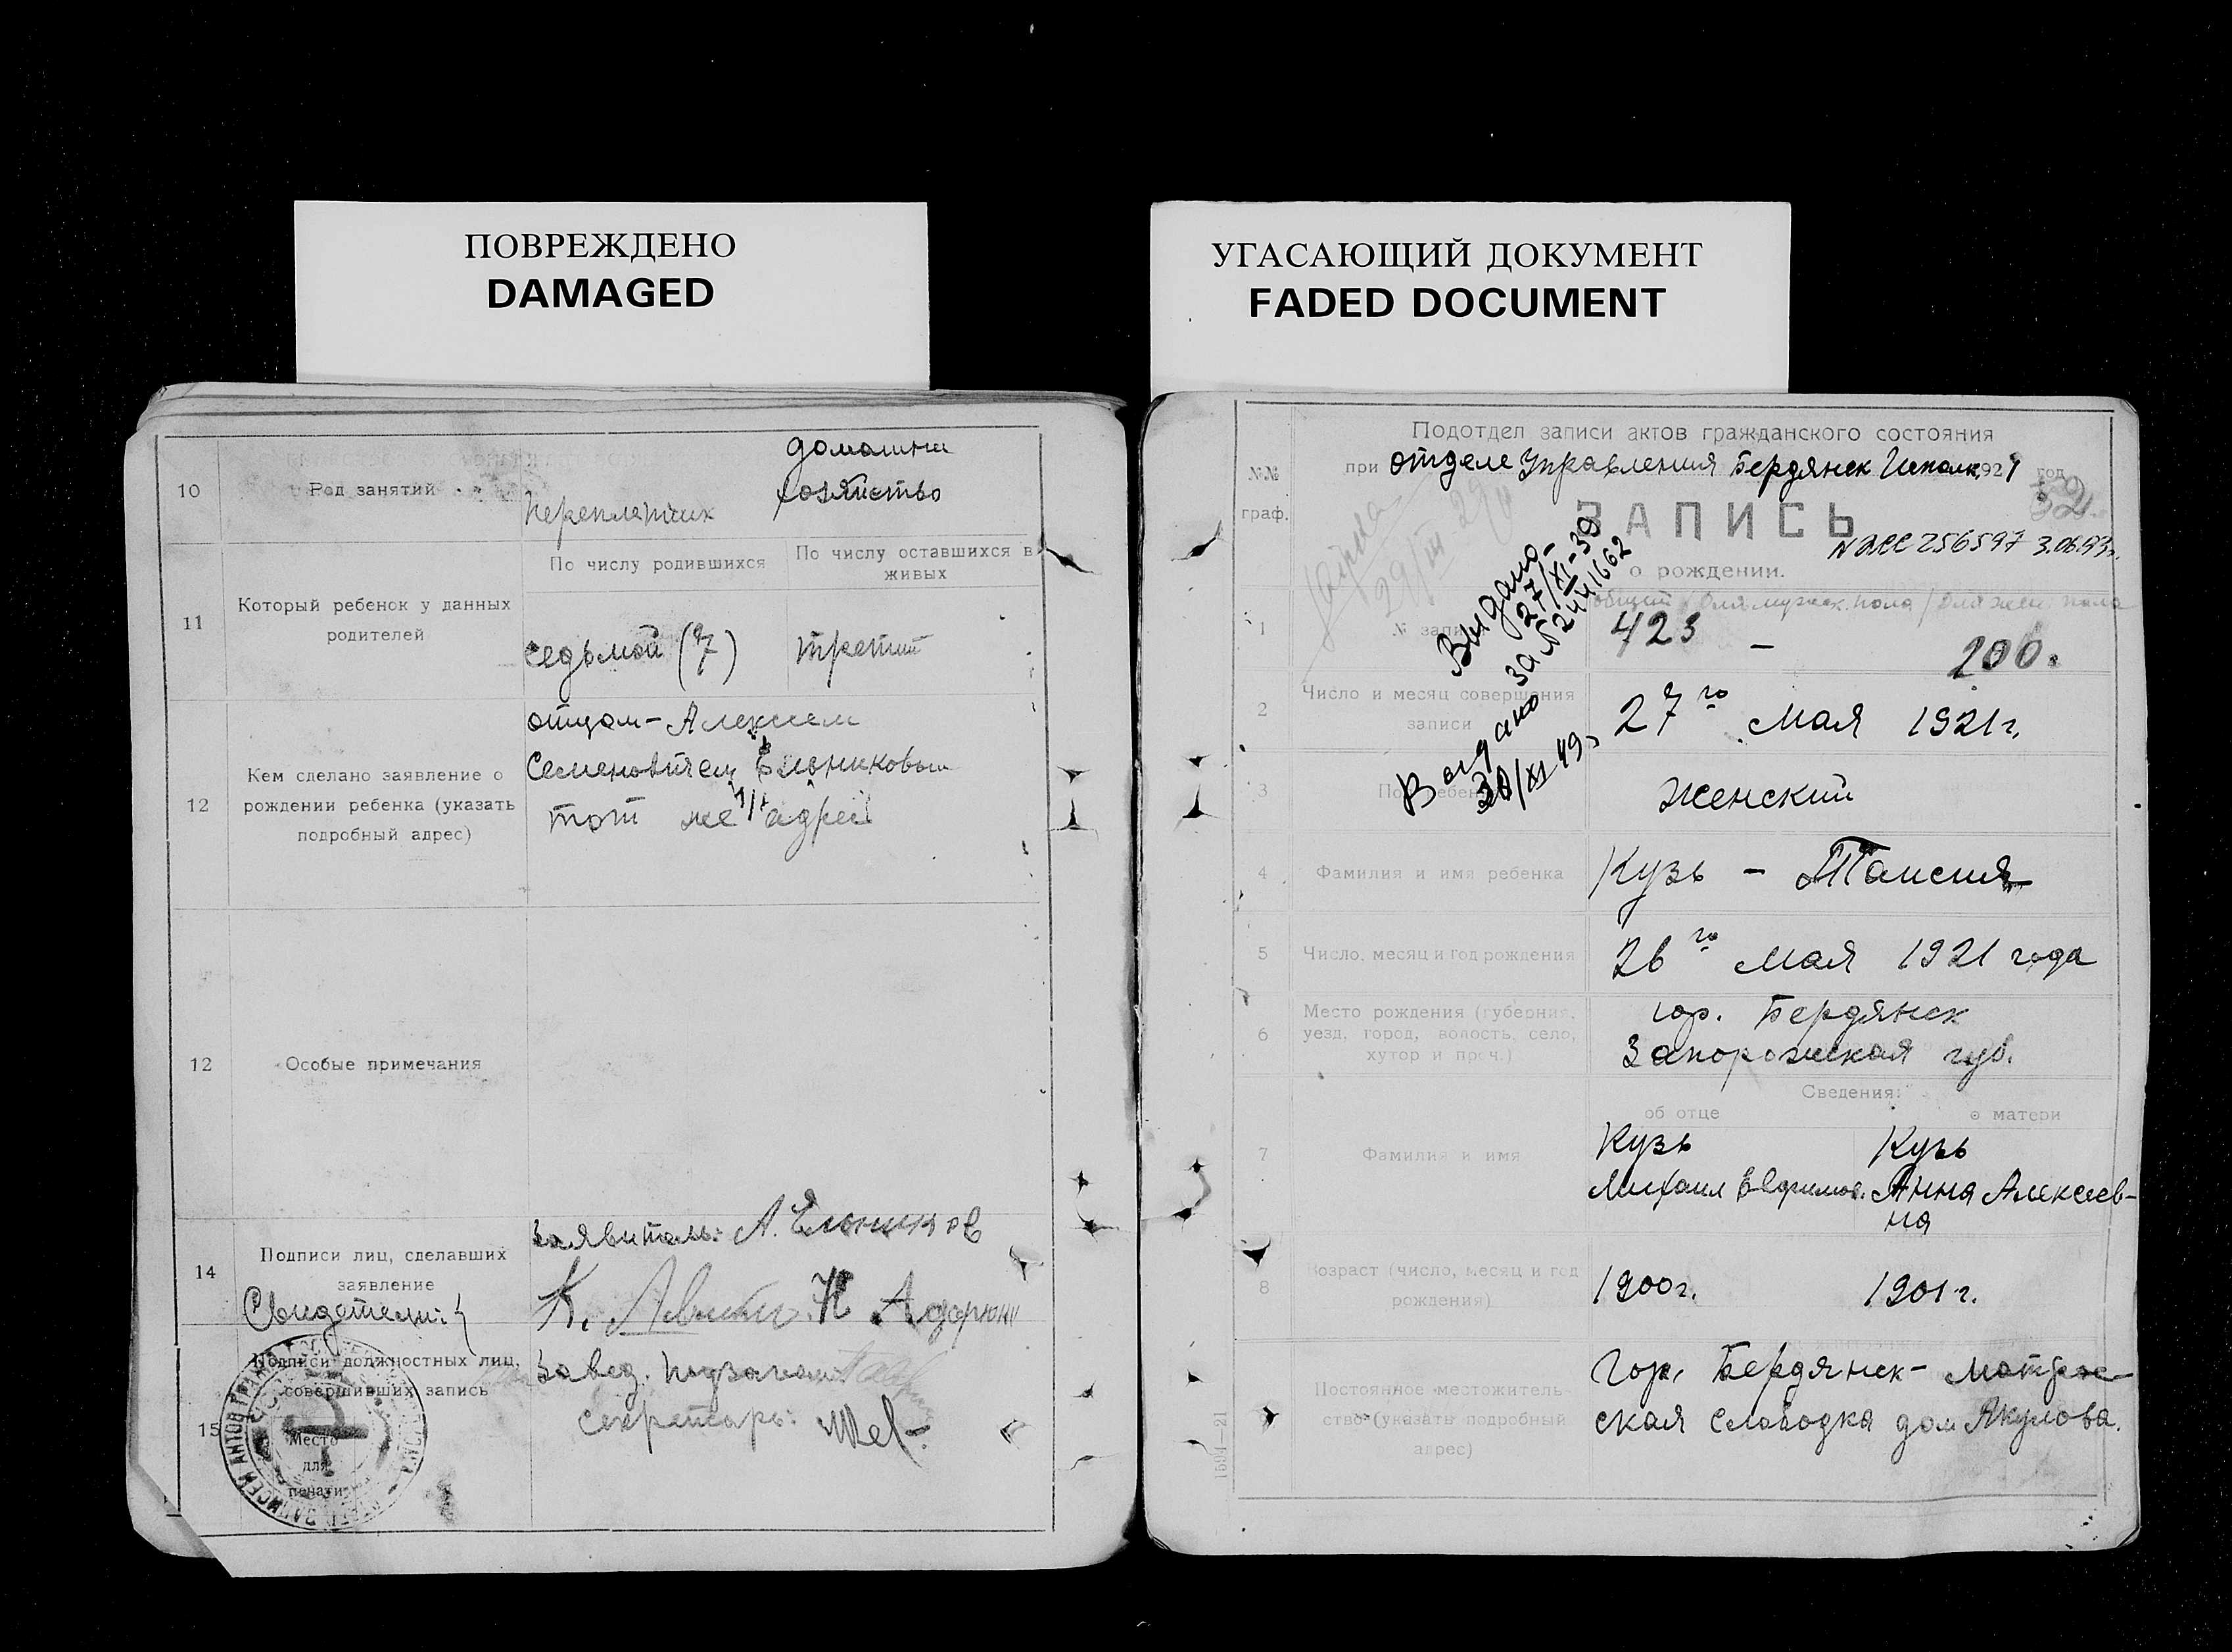 ПОВРЕЖДЕНО
DAMAGED
10
Род занятий
переплетчик
домашнее
хозяйство
11
Который ребенок у данных
родителей
По числу родившихся
По числу оставшихся в
живых
седьмой (7)
третий
12
Кем сделано заявление о
рождении ребенка (указать
подробный адрес)
отцом - Алексеем
Семеновичем
тот же адрес
12
Особые примечания
14
Подписи лиц, сделавших
заявление
Свидетели:
заявитель: А.
К.
15
Подписи должностных лиц,
совершивших запись
Место
для
печати
Завед.
Секретарь:
УГАСАЮЩИЙ ДОКУМЕНТ
FADED DOCUMENT
№№
граф.
Подотдел записи актов гражданского состояния
при отделе Управления Бердянск Исполк. 1921 год
52
ЗАПИСЬ
256597 3.06.93г.
о рождении.
Выдано
27/XI-39
за № 2441662
Выдано
30/XI 49г
1
№ записи
общий / для мужск. пола / для жен. пола
423 - 200.
2
Число и месяц совершения
записи
27го мая 1921г.
3
Пол ребенка
женский
4
Фамилия и имя ребенка
Кузь - Таисия
5
Число, месяц и год рождения
26го мая 1921 года
6
Место рождения (губерния,
уезд, город, волость, село,
хутор и проч.)
гор. Бердянск
Запорожская губ.
Сведения:
об отце
о матери
7
Фамилия и имя
Кузь
Михаил Ефимов.
Кузь
Анна Алексеев-
на
8
Возраст (число, месяц и год
рождения)
1900г.
1901г.
Постоянное местожитель-
ство (указать подробный
адрес)
Гор. Бердянск - Матрос-
ская слободка дом Якулова.
1594—21